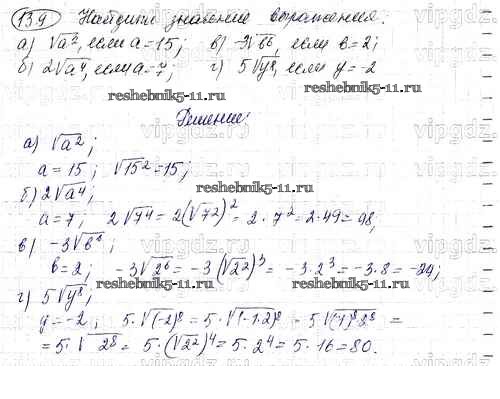 139 Найдите значение выражения:
а) √a², если a=15; в) -3√b⁶, если b=2;
б) 2√a⁴, если a=7; г) 5√y⁸, если y=-2
reshebnik5-11.ru
reshebnik5-11.ru
Решение:
а) √a²;
a=15; √15²=15;
б) 2√a⁴;
reshebnik5-11.ru
a=7; 2√7⁴=2(√7²)²=2·7²=2·49=98;
в) -3√b⁶;
b=2; -3√2⁶=-3(√2²)³=-3·2³=-3·8=-24;
г) 5√y⁸;
reshebnik5-11.ru
reshebnik5-11.ru
y=-2; 5·√(-2)⁸=5·√(-1·2)⁸=5√(-1)⁸2⁸=
=5·√2⁸=5·(√2²)⁴=5·2⁴=5·16=80.